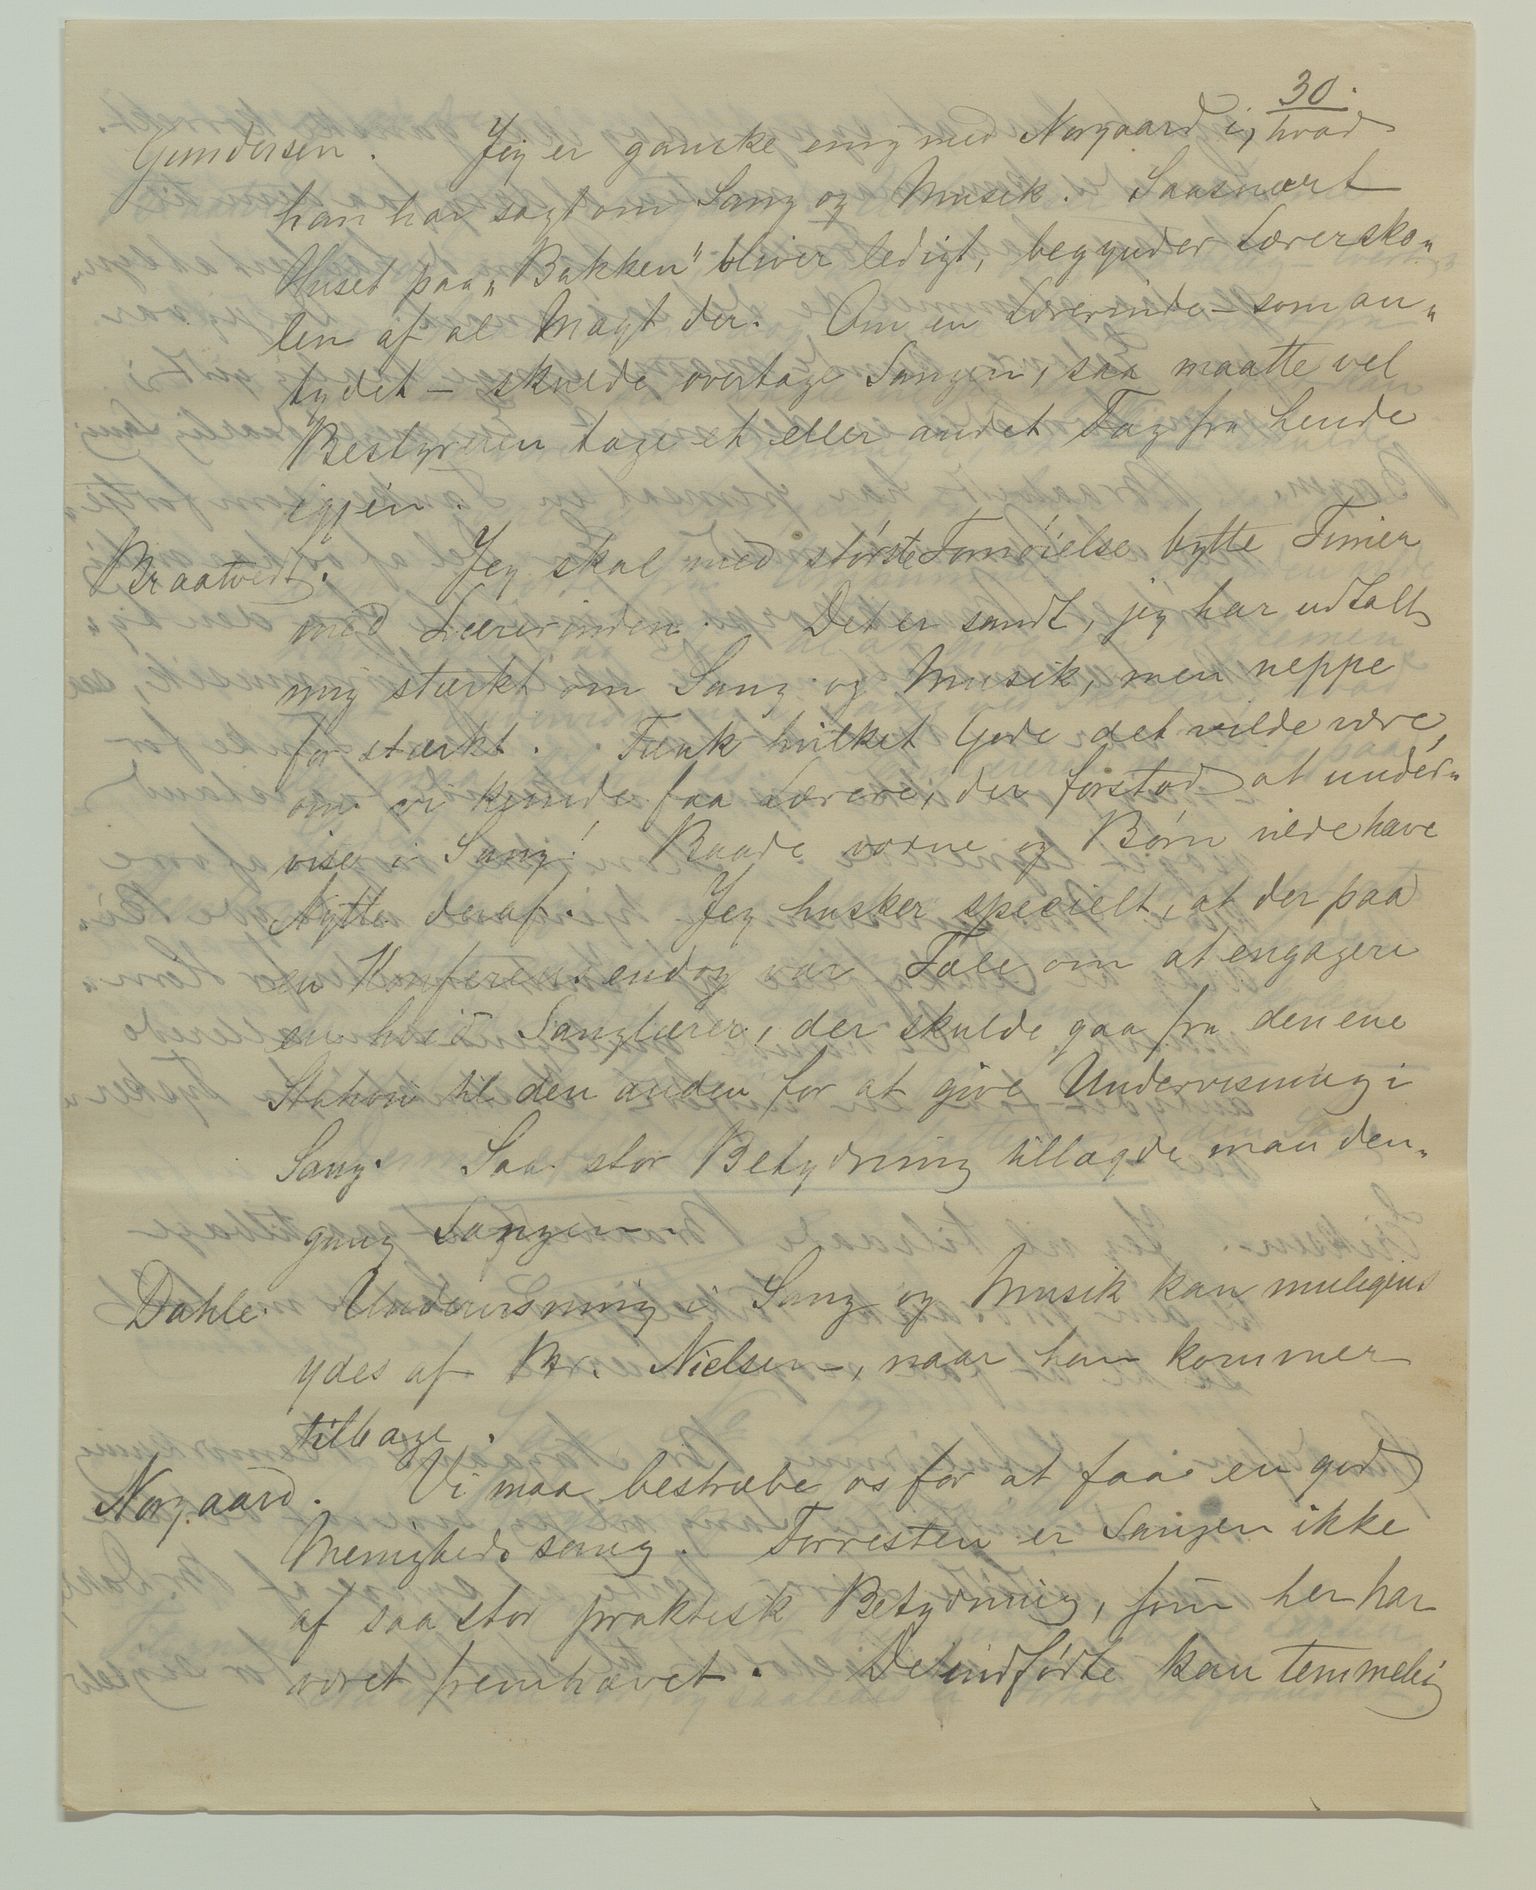 30.
Gundersen. Jeg er ganske enig med Norgaard i, hvad
han har sagt om Sang og Musik. Saasnart
Huset paa „Bakken" bliver ledigt, begynder Lærersko„
len af al Magt der. Om en Lærerinde – som an„
tydet – skulde overtage Sangen, saa maatte vel
Bestyreren tage et eller andet Fag fra hende
igjen.
Braatvedt. Jeg skal med største Fornøielse bytte Timer
med Lærerinden. Det er sandt, jeg har udtalt
mig stærkt om Sang og Musik, men neppe
for stærkt. Tænk hvilket Gode det vilde være,
om vi kunde faa Lærere, der forstod at under„
vise i Sang! Baade voxne og Børn vilde have
Nytte deraf. Jeg husker specielt, at der paa
en Konferens endog var Tale om at engagere
en hvid Sanglærer, der skulde gaa fra den ene
Station til den anden for at give Undervisning i
Sang. Saa stor Betydning tillagde man den„
gang Sangen.
Dahle. Undervisning i Sang og Musik kan muligens
ydes af Br. Nielsen –, naar han kommer
tilbage.
Norgaard. Vi maa bestræbe os for at faa en god
Menighedssang. Forresten er Sangen ikke
af saa stor praktisk Betydning, som her har
været fremhævet. De indfødte kan temmelig